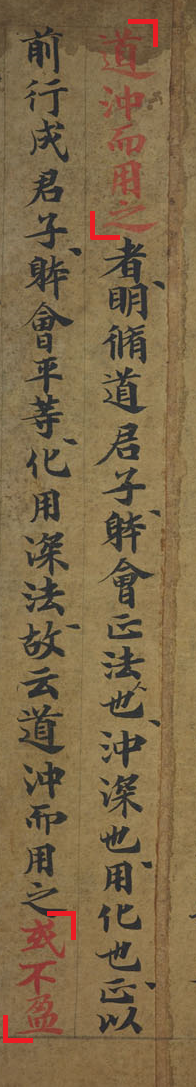 道沖而用之者明脩道君子躰會正法也沖深也用化也正以
前行成君子躰會平等化用深法故云道沖而用之或不盈